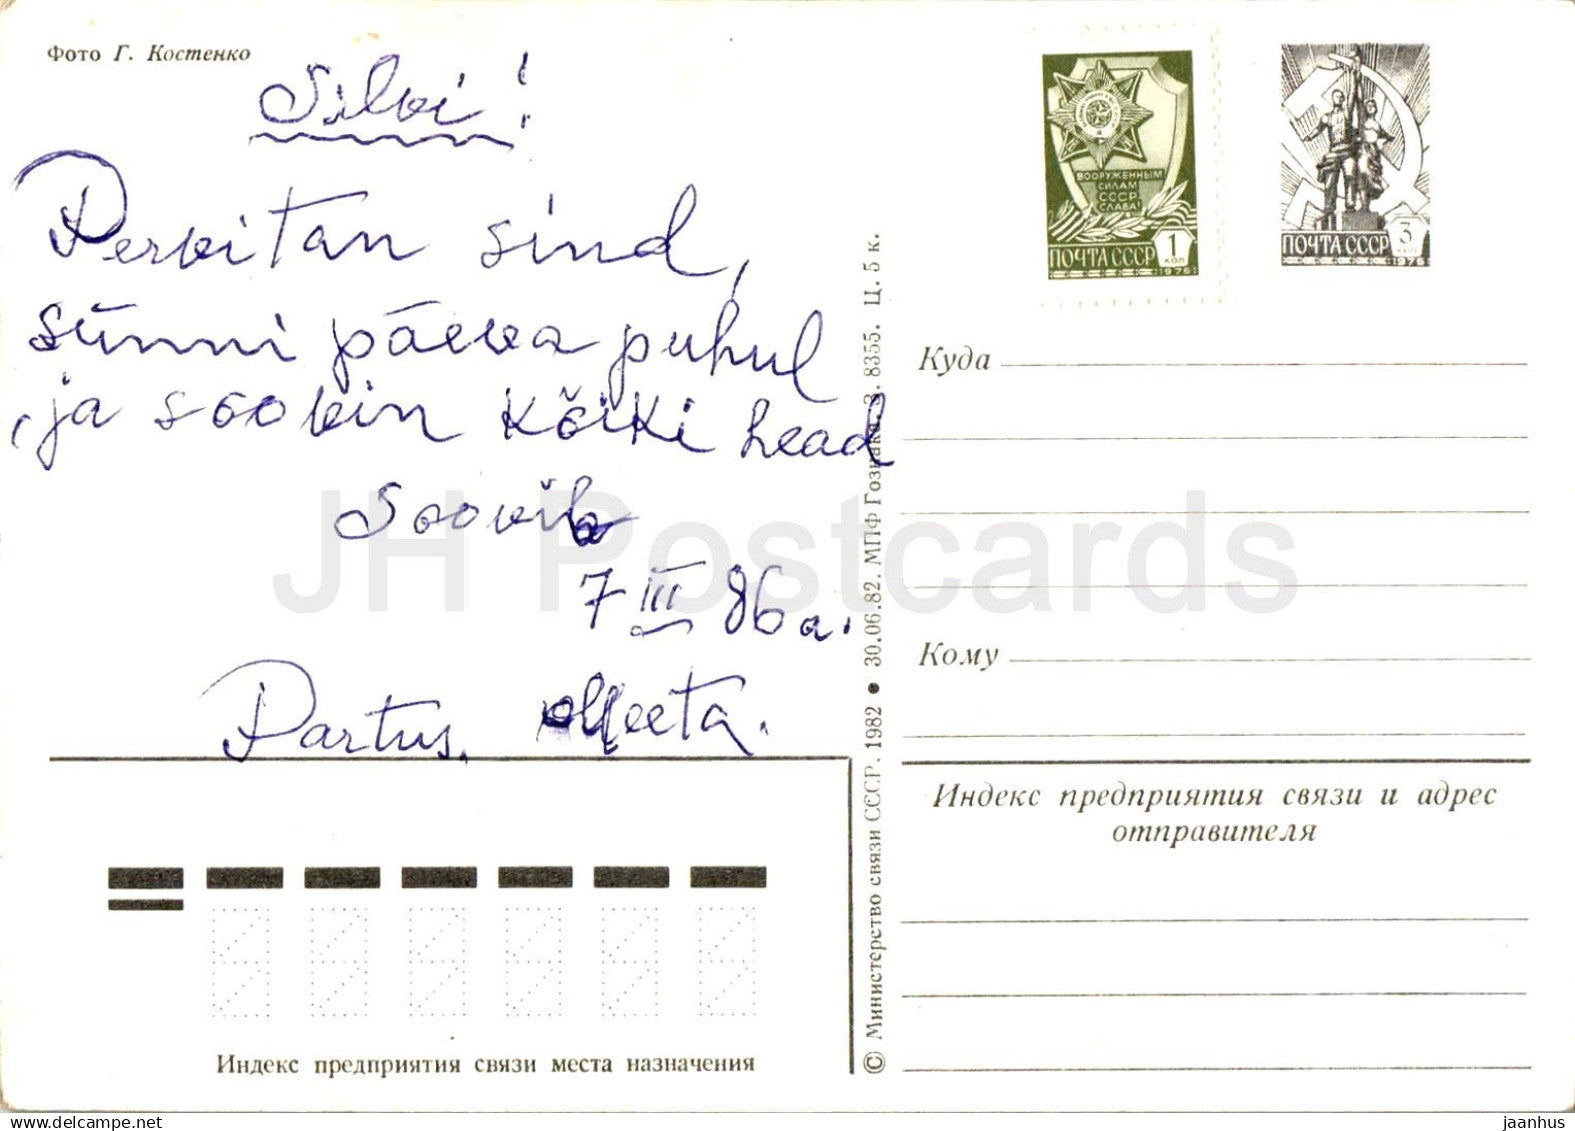 Фото Г. Костенко
Silvi!
Pervitan sind,
sünni päeva puhul
, ja soovin kõiki head
Soovib
7 III 86 a.
Partus. Meeta.
ВООРУЖЕННЫМ
СИЛАМ
СССР
СЛАВА!
ПОЧТА СССР 1 КОП
1976
ПОЧТА СССР 3 КОП
1976
Куда
Кому
Индекс предприятия связи и адрес
отправителя
Индекс предприятия связи места назначения
© Министерство связи СССР. 1982 ● 30.06.82. МПФ Гознака. З. 8355. Ц. 5 к.
JH Postcards
delcampe.net
jaanhus